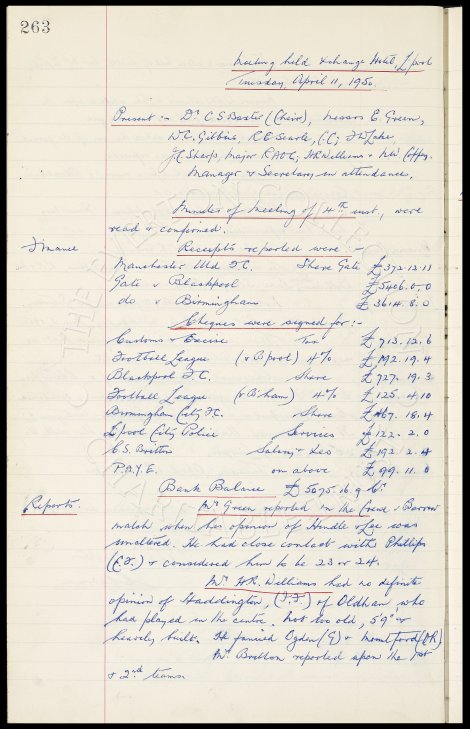 263
Meeting held Exchange Hotel, L'pool
Tuesday, April 11, 1950.
Present :- Dr C S Baxter (Chair), Messrs E. Green,
W.C. Gibbins, R.E. Searle, C.C; J W Lake,
J C Sharp, Major R.A.O.C; H R Williams & N.W. Coffey.
Manager & Secretary in attendance.
Minutes of meeting of 4th inst., were
read & confirmed.
Finance
Receipts reported were :-
Manchester Utd F.C. Share Gate £372.12.11
Gate v Blackpool £5406.0.0
do v Birmingham £3614.8.0
Cheques were signed for :-
Customs & Excise Tax £713.12.6
Football League (v B'pool) 4% £192.19.4
Blackpool F.C. Share £727.19.3
Football League (v B'ham) 4% £125.4.10
Birmingham City F.C. Share £467.18.4
L'pool City Police Services £122.2.0
C.S. Britton Salary & Exs £192.2.4
P.A.Y.E. on above £99.11.0
Bank Balance £5675.16.9 Cr.
Reports.
Mr Green reported on the Crewe v Barrow
match when his opinion of Hindle & Lee was
unaltered. He had close contact with Phillips
& considered him to be 23 or 24.
Mr H.R. Williams had no definite
opinion of Haddington, of Oldham who
had played in the centre. Not too old, 5'9" &
heavily built. He fancied Ogden (G) & Mountford (OR)
Mr Britton reported upon the 1st
& 2nd teams.
THE EVERTON COLLECTION
CHARITABLE